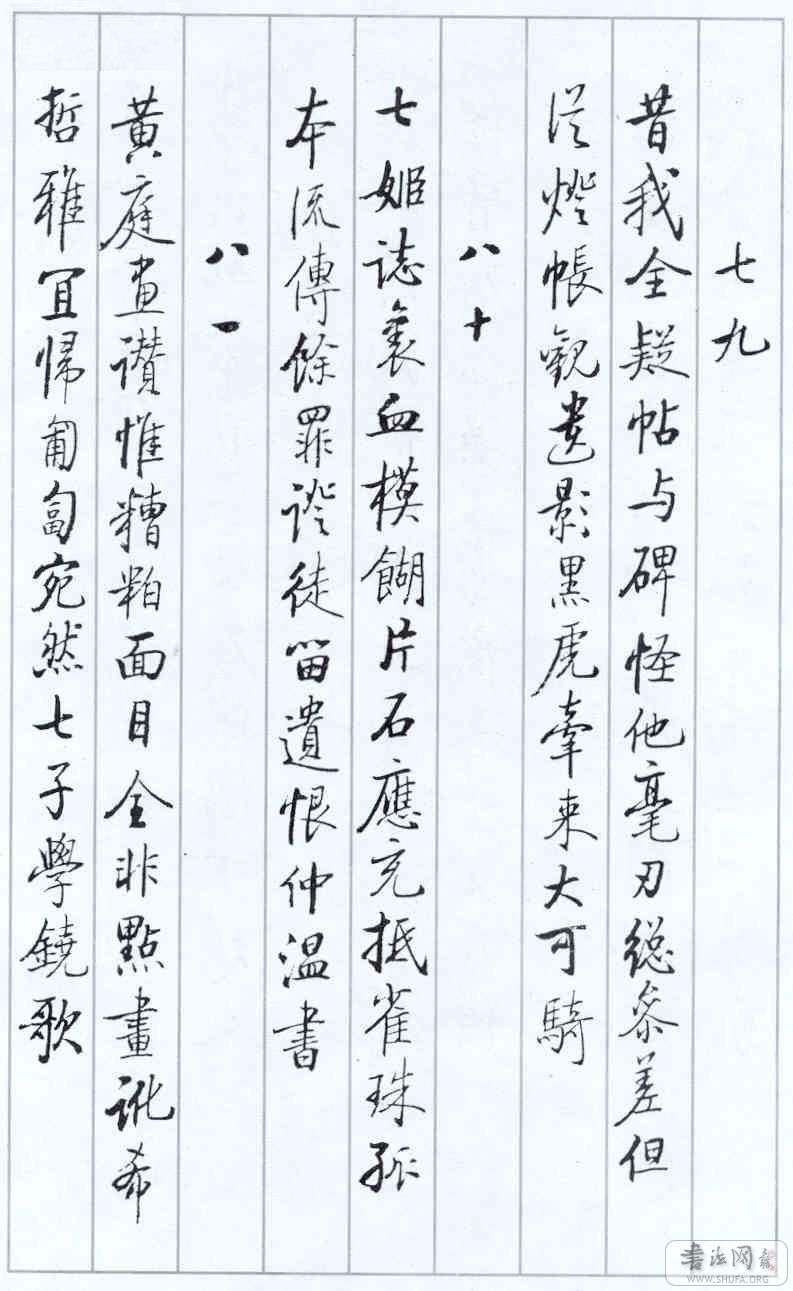 七九
昔我全疑帖与碑怪他毫刃総参差但
從燈帳觀遺影黑虎牽来大可騎
八十
七姬誌裏血模餬片石應充抵雀珠孤
本流傳餘罪證徒留遺恨仲温書
八一
黃庭畫讚惟糟粕面目全非點畫訛希
哲雅宜歸匍匐宛然七子學鐃歌
書法网
WWW.SHUFA.ORG